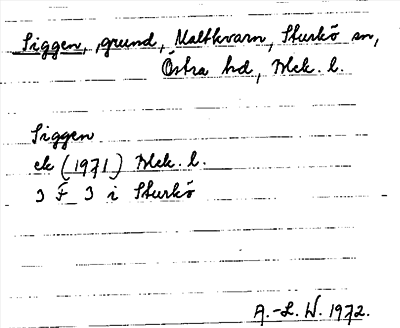 Siggen, grund, Maltkvarn, Sturkö sn,
Östra hd, Blek. l.
Siggen
ek (1971) Blek. l.
3 F 3 i Sturkö
A.-L. W. 1972.